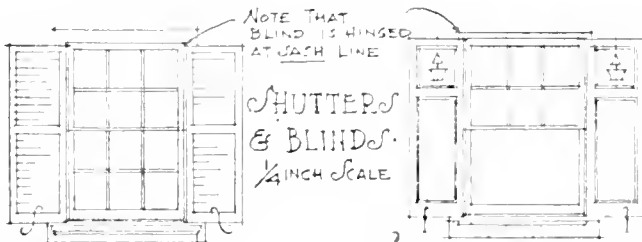 NOTE THAT
BLIND IS HINGED
AT SASH LINE
SHUTTERS
& BLINDS.
1/4 INCH SCALE